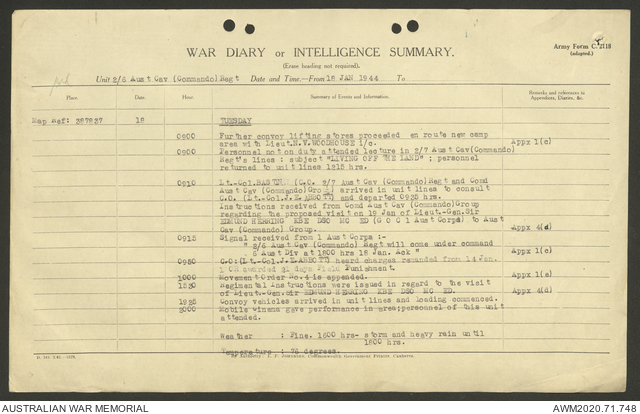 Army Form C. 2118
(adapted.)
WAR DIARY or INTELLIGENCE SUMMARY.
(Erase heading not required).
Unit 2/6 Aust Cav (Commando) Regt Date and Time.—From 18 JAN 1944 To
Place. Date. Hour. Summary of Events and Information. Remarks and references to Appendices, Diaries, &c.
Map Ref: 397937 18 TUESDAY
0800 Further convoy lifting stores proceeded en route new camp
area with Lieut.N.V.WOODHOUSE i/c. Appx 1(c)
0900 Personnel not on duty attended lecture in 2/7 Aust Cav(Commando)
Regt's lines : subject "LIVING OFF THE LAND" : personnel
returned to unit lines 1215 hrs.
0910 Lt.-Col. (C.O. 2/7 Aust Cav (Commando)Regt and Comd
Aust Cav (Commando)Group) arrived in unit lines to consult
C.O. (Lt.-Col.J.E.ABBOTT) and departed 0925 hrs.
Instructions received from Comd Aust Cav(Commando)Group
regarding the proposed visit on 19 Jan of Lieut.-Gen.Sir
EDMUND HERRING KBE DSO MC ED (G O C 1 Aust Corps) to Aust
Cav (Commando) Group. Appx 4(d)
0915 Signal received from 1 Aust Corps :-
" 2/6 Aust Cav (Commando) Regt will come under command
6 Aust Div at 1800 hrs 18 Jan. Ack " Appx 1(c)
0930 C.O.(Lt.-Col.J.E.ABBOTT) heard charges remanded from 14 Jan.
1 OR awarded 21 days Field Punishment.
1000 Movement Order No.4 is appended. Appx 1(c)
1530 Regimental Instructions were issued in regard to the visit
of Lieut.-Gen.Sir EDMUND HERRING KBE DSO MC ED. Appx 4(d)
1935 Convoy vehicles arrived in unit lines and loading commenced.
2000 Mobile cinema gave performance in area;personnel of this unit
attended.
Weather : Fine. 1600 hrs- storm and heavy rain until
1800 hrs.
Temperature : 76 degrees.
AUSTRALIAN WAR MEMORIAL AWM2020.71.748